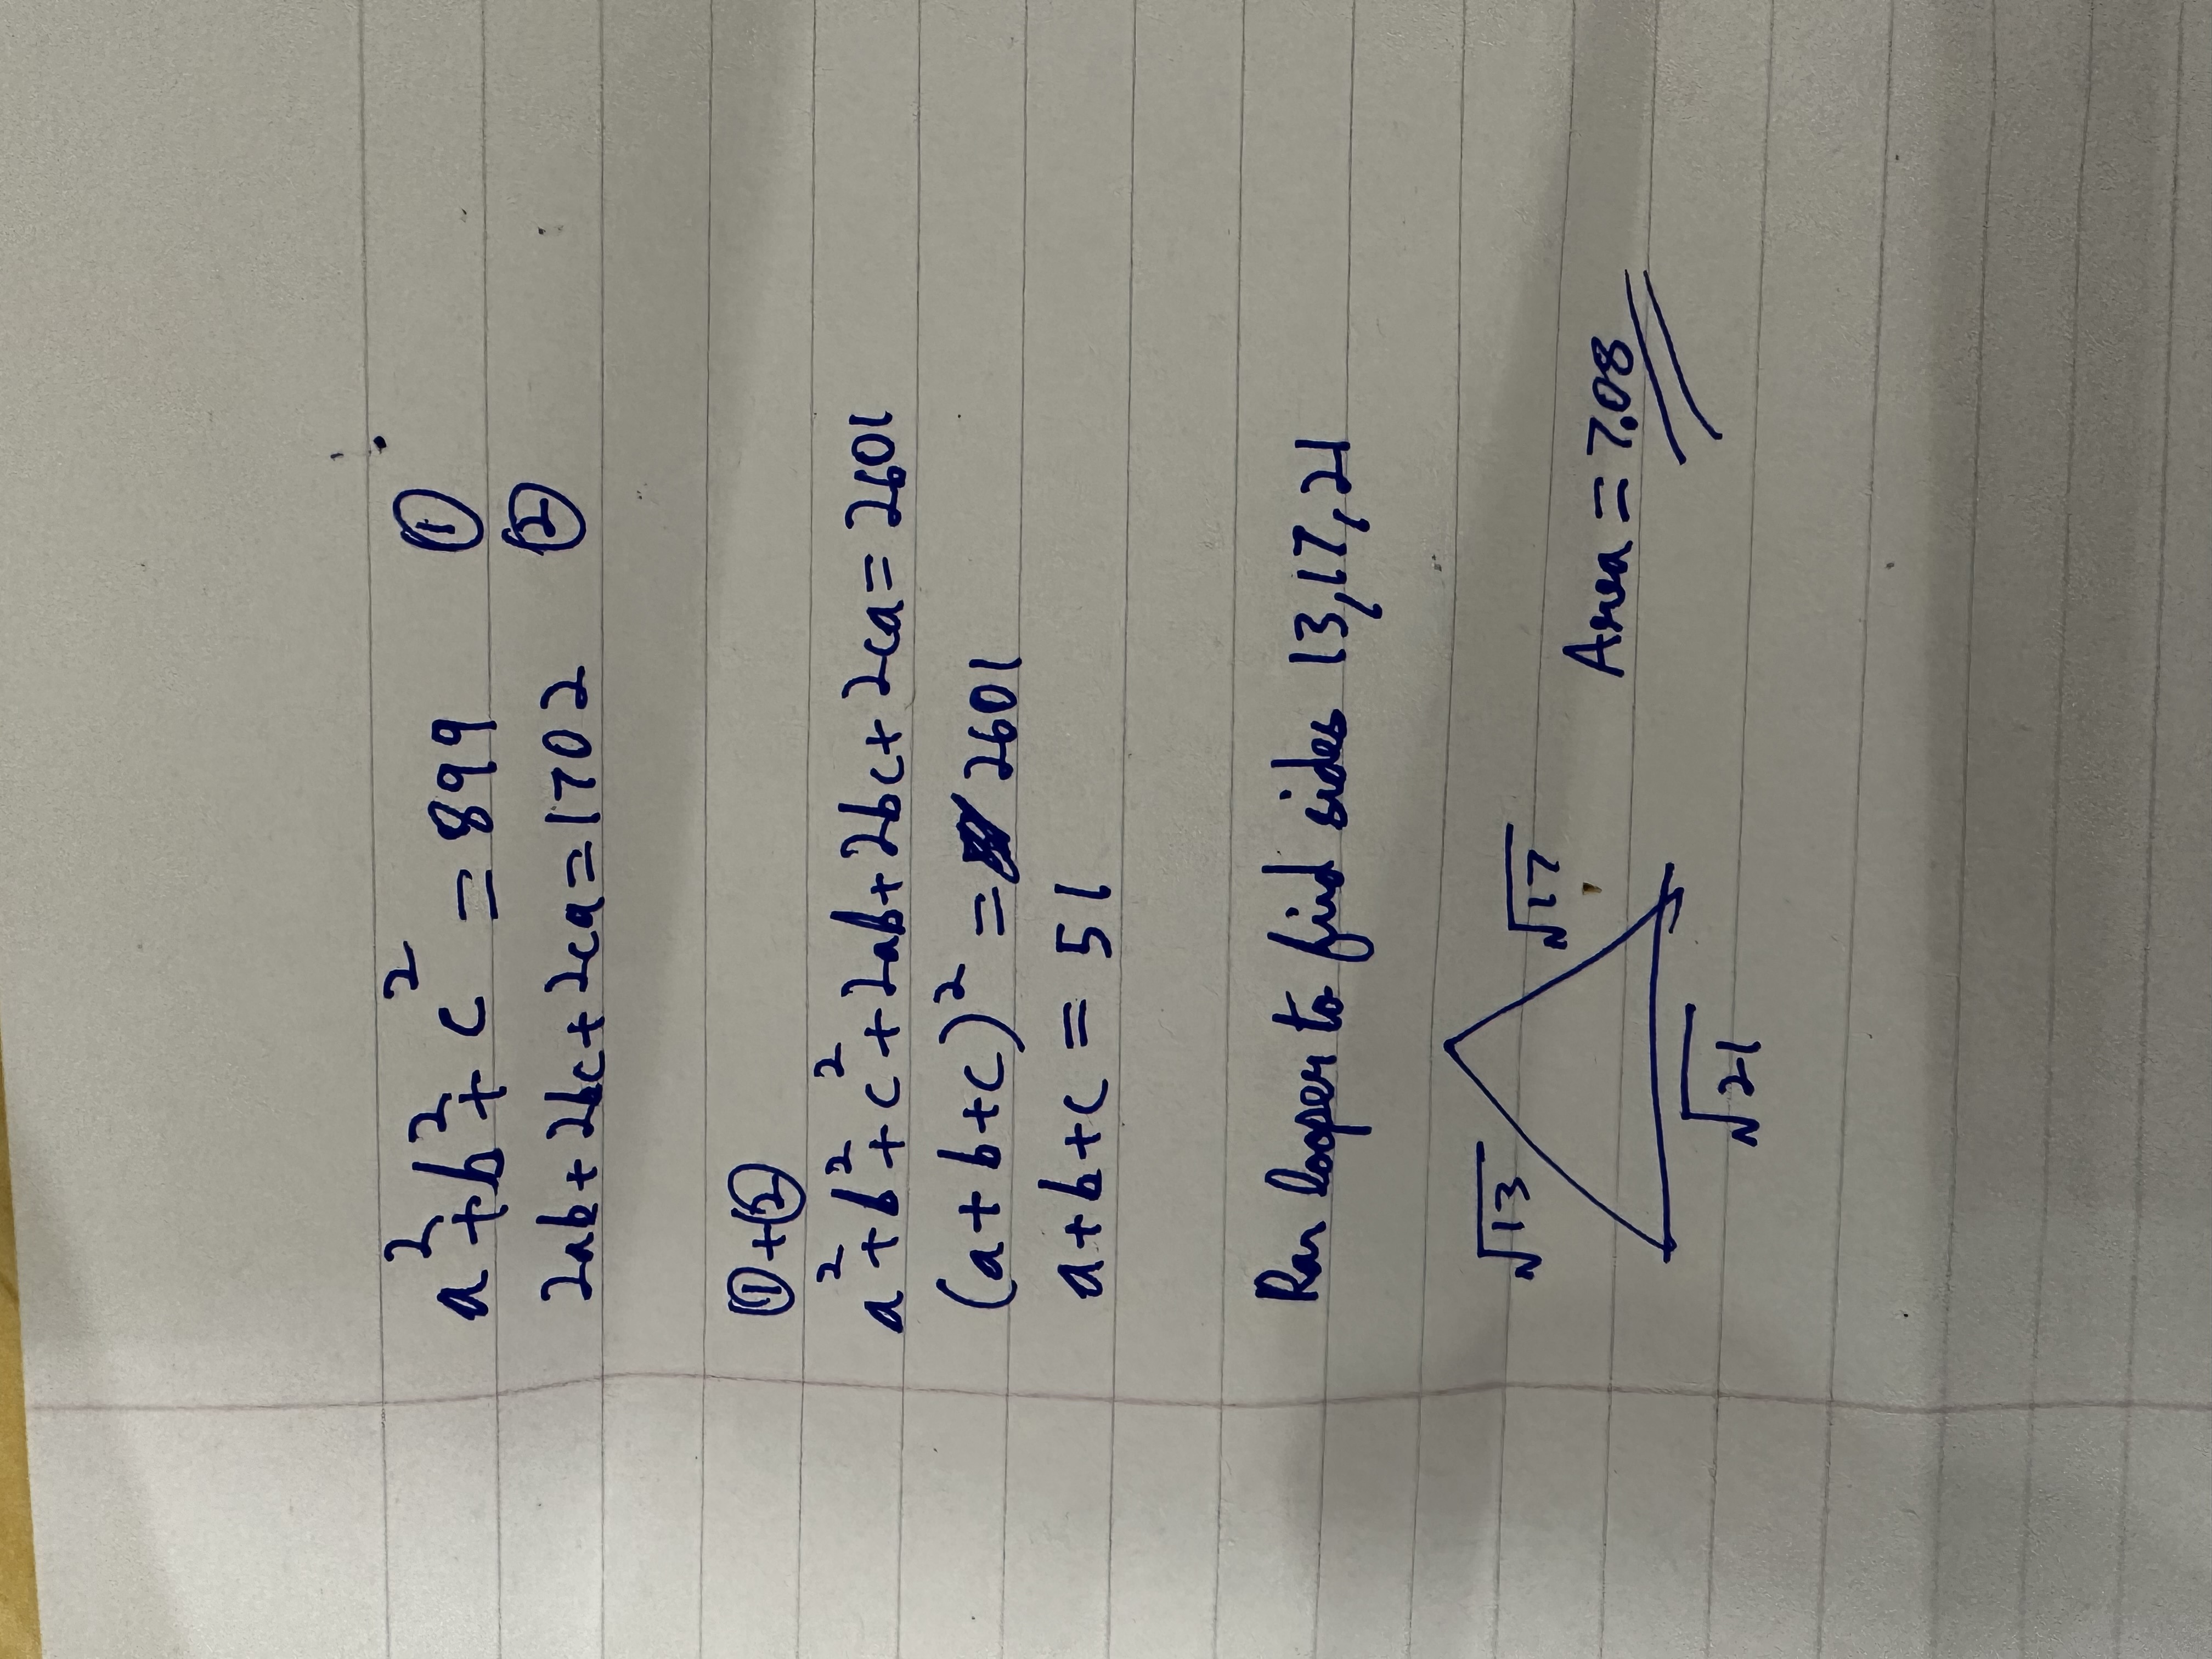 a²+b²+c² = 899 ①
2ab+2bc+2ca=1702 ②
①+②
a²+b²+c²+2ab+2bc+2ca= 2601
(a+b+c)² = 2601
a+b+c = 51
Ran looper to find sides 13,17,21
√13
√17
Area = 7.08
√21